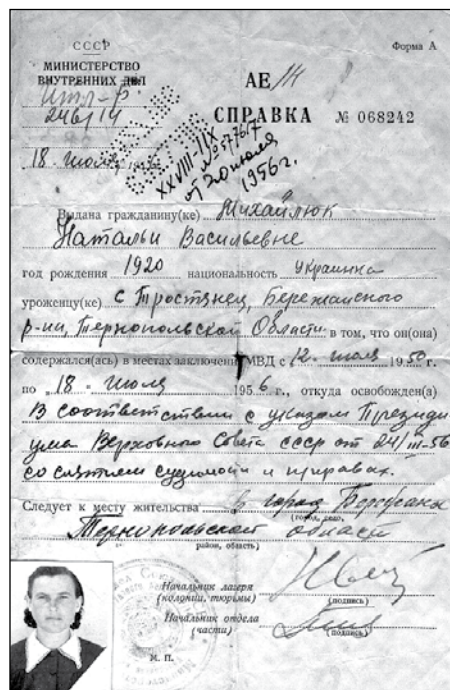 СССР
Форма А
МИНИСТЕРСТВО
ВНУТРЕННИХ ДЕЛ
АЕ 14
СПРАВКА № 068242
18. июля
XXVIII-IIX
№ 577617
от 20 июля
1956г.
Выдана гражданину(ке) Михайлюк
Натальи Васильевне
год рождения 1920 национальность украинка
уроженцу(ке) с Тростянец, Бережанского
р-на, Тернопольской Области в том, что он(она)
содержался(ась) в местах заключения МВД с 12 июля 1950 г.
по 18. июля 1956 г., откуда освобожден(а)
В соответствии с указом Президи
ума Верховного Совета СССР от 24/III-56
со снятием судимости и
Следует к месту жительства в город Бережаны
(город, село,
Тернопольской области
район, область)
Начальник лагеря
(колонии, тюрьмы)
(подпись)
Начальник отдела
(части)
(подпись)
М. П.